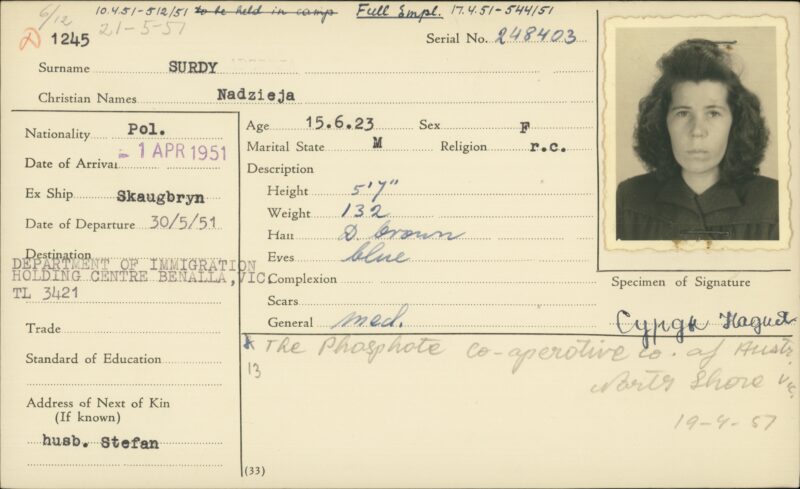 6/12 10.4.51-512/51 to be held in camp Full Empl. 17.4.51-544/51
21-5-51
D 1245 Serial No. 248403
Surname SURDY
Christian Names Nadzieja
Nationality Pol.
Date of Arrival - 1 APR 1951
Ex Ship Skaugbryn
Date of Departure 30/5/51
Destination
DEPARTMENT OF IMMIGRATION
HOLDING CENTRE BENALLA, VIC.
TL 3421
Trade
Standard of Education
Address of Next of Kin
(If known)
husb. Stefan
Age 15.6.23 Sex F
Marital State M Religion r.c.
Description
Height 5'7"
Weight 132
Hair D brown
Eyes blue
Complexion
Scars
General med.
Specimen of Signature
Сурды Надея
* The Phosphate co-operative co. of Austr.
13 North Shore Vic.
19-4-51
(33)